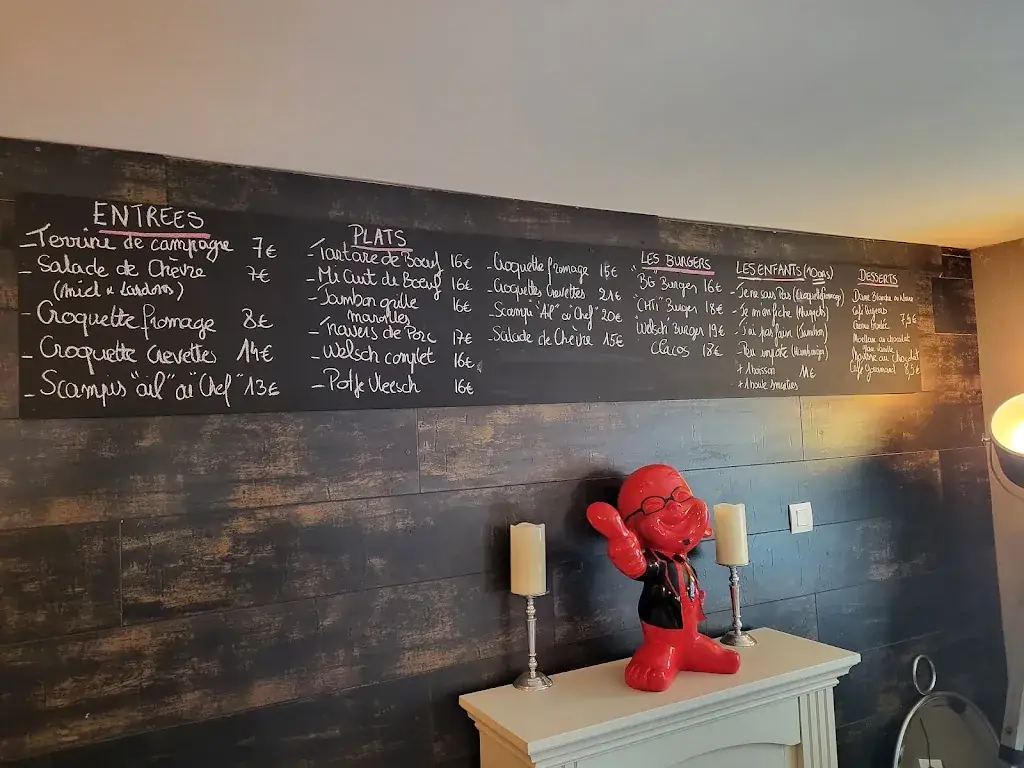 ENTREES
- Terrine de campagne 7€
- Salade de Chèvre 7€
(miel & Lardons)
- Croquette fromage 8€
- Croquette Crevettes 14€
- Scampis "ail" ou "Chef" 13€
PLATS
- Tartare de Boeuf 16€
- Mi Cuit de Boeuf 16€
- Jambon grillé 16€
maroilles
- Travers de Porc 17€
- Welsch complet 16€
- Potje Vleesch 16€
- Croquette fromage 15€
- Croquettes Crevettes 21€
- Scampis "Ail" ou "Chef" 20€
- Salade de Chèvre 15€
LES BURGERS
BG Burger 16€
"CH'ti" Burger 18€
Welsch Burger 19€
Clacos 18€
LES ENFANTS (10ans)
- Je ne sais Pas (Croquette fromage)
- Je m'en fiche (Nuggets)
- J'ai pas faim (Jambon)
- Peu importe (Hamburger)
+ 1 boisson 11€
+ 1 boule Smarties
DESSERTS
Dame Blanche ou Noire
Café Liégeois
Crème Brulée 7,5€
Moelleux au chocolat
Mousse au Chocolat
Café Gourmand 8,5€